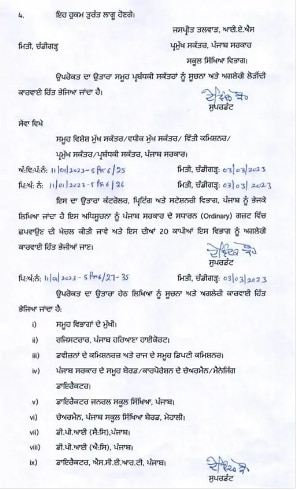 4. ਇਹ ਹੁਕਮ ਤੁਰੰਤ ਲਾਗੂ ਹੋਣਗੇ।
ਜਸਪ੍ਰੀਤ ਤਲਵਾੜ, ਆਈ.ਏ.ਐਸ
ਮਿਤੀ, ਚੰਡੀਗੜ੍ਹ ਪ੍ਰਮੁੱਖ ਸਕੱਤਰ, ਪੰਜਾਬ ਸਰਕਾਰ
ਸਕੂਲ ਸਿੱਖਿਆ ਵਿਭਾਗ।
ਉਪਰੋਕਤ ਦਾ ਉਤਾਰਾ ਸਮੂਹ ਪ੍ਰਬੰਧਕੀ ਸਕੱਤਰਾਂ ਨੂੰ ਸੂਚਨਾ ਅਤੇ ਅਗਲੇਰੀ ਲੋੜੀਂਦੀ
ਕਾਰਵਾਈ ਹਿੱਤ ਭੇਜਿਆ ਜਾਂਦਾ ਹੈ।
ਸੁਪਰਡੰਟ
ਸੇਵਾ ਵਿਖੇ
ਸਮੂਹ ਵਿਸ਼ੇਸ਼ ਮੁੱਖ ਸਕੱਤਰ/ਵਧੀਕ ਮੁੱਖ ਸਕੱਤਰ/ ਵਿੱਤੀ ਕਮਿਸ਼ਨਰ/
ਪ੍ਰਮੁੱਖ ਸਕੱਤਰ/ਪ੍ਰਬੰਧਕੀ ਸਕੱਤਰ, ਪੰਜਾਬ ਸਰਕਾਰ।
ਅੰ:ਵਿ:ਪ:ਨੰ: 11/01/2023-5 /25 ਮਿਤੀ, ਚੰਡੀਗੜ੍ਹ: 03/03/2023
ਪਿ:ਅੰ: ਨੰ: 11/01/2023-5 /26 ਮਿਤੀ, ਚੰਡੀਗੜ੍ਹ: 03/03/2023
ਇਸ ਦਾ ਉਤਾਰਾ ਕੰਟਰੋਲਰ, ਪ੍ਰਿੰਟਿੰਗ ਅਤੇ ਸਟੇਸ਼ਨਰੀ ਵਿਭਾਗ, ਪੰਜਾਬ ਨੂੰ ਭੇਜਕੇ
ਲਿਖਿਆ ਜਾਂਦਾ ਹੈ ਇਸ ਅਧਿਸੂਚਨਾ ਨੂੰ ਪੰਜਾਬ ਸਰਕਾਰ ਦੇ ਸਧਾਰਨ (Ordinary) ਗਜ਼ਟ ਵਿੱਚ
ਛਪਵਾਉਣ ਦੀ ਖੇਚਲ ਕੀਤੀ ਜਾਵੇ ਅਤੇ ਇਸ ਦੀਆਂ 20 ਕਾਪੀਆਂ ਇਸ ਵਿਭਾਗ ਨੂੰ ਅਗਲੇਰੀ
ਕਾਰਵਾਈ ਹਿੱਤ ਭੇਜੀਆਂ ਜਾਣ।
ਸੁਪਰਡੰਟ
ਪਿ:ਅੰ:ਨੰ: 11/01/2023-5 /27-35 ਮਿਤੀ, ਚੰਡੀਗੜ੍ਹ: 03/03/2023
ਉਪਰੋਕਤ ਦਾ ਉਤਾਰਾ ਹੇਠ ਲਿਖਿਆ ਨੂੰ ਸੂਚਨਾ ਅਤੇ ਅਗਲੇਰੀ ਕਾਰਵਾਈ ਹਿੱਤ
ਭੇਜਿਆ ਜਾਂਦਾ ਹੈ:
i) ਸਮੂਹ ਵਿਭਾਗਾਂ ਦੇ ਮੁੱਖੀ।
ii) ਰਜਿਸਟਰਾਰ, ਪੰਜਾਬ ਹਰਿਆਣਾ ਹਾਈਕੋਰਟ।
iii) ਡਵੀਜ਼ਨਾਂ ਦੇ ਕਮਿਸ਼ਨਰਜ਼ ਅਤੇ ਰਾਜ ਦੇ ਸਮੂਹ ਡਿਪਟੀ ਕਮਿਸ਼ਨਰ।
iv) ਪੰਜਾਬ ਸਰਕਾਰ ਦੇ ਸਮੂਹ ਬੋਰਡ/ਕਾਰਪੋਰੇਸ਼ਨ ਦੇ ਚੇਅਰਮੈਨ/ਮੈਨੇਜਿੰਗ
ਡਾਇਰੈਕਟਰ।
v) ਡਾਇਰੈਕਟਰ ਜਨਰਲ ਸਕੂਲ ਸਿੱਖਿਆ, ਪੰਜਾਬ।
vi) ਚੇਅਰਮੈਨ, ਪੰਜਾਬ ਸਕੂਲ ਸਿੱਖਿਆ ਬੋਰਡ, ਮੋਹਾਲੀ।
vii) ਡੀ.ਪੀ.ਆਈ (ਸੈ:ਸਿ), ਪੰਜਾਬ।
viii) ਡੀ.ਪੀ.ਆਈ (ਐ:ਸਿ), ਪੰਜਾਬ।
ix) ਡਾਇਰੈਕਟਰ, ਐਸ.ਸੀ.ਈ.ਆਰ.ਟੀ, ਪੰਜਾਬ।
ਸੁਪਰਡੰਟ